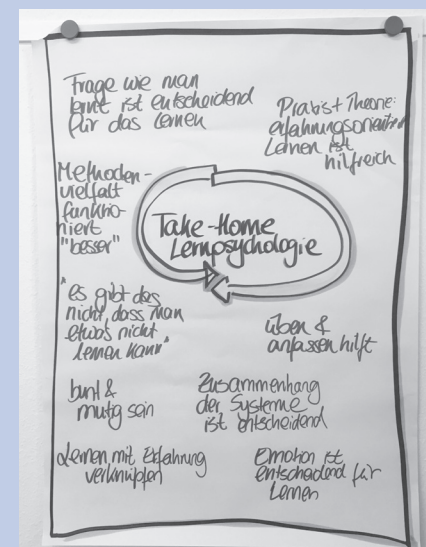 Frage wie man
lernt ist entscheidend
für das Lernen
Praxis + Theorie:
erfahrungsorientiert
Lernen ist
hilfreich
Methoden-
vielfalt
funktio-
niert
"besser"
Take-Home
Lernpsychologie
"es gibt das
nicht, dass man
etwas nicht
lernen kann"
üben &
anfassen hilft
bunt &
mutig sein
Zusammenhang
der Systeme
ist entscheidend
Lernen mit Erfahrung
verknüpfen
Emotion ist
entscheidend für
Lernen